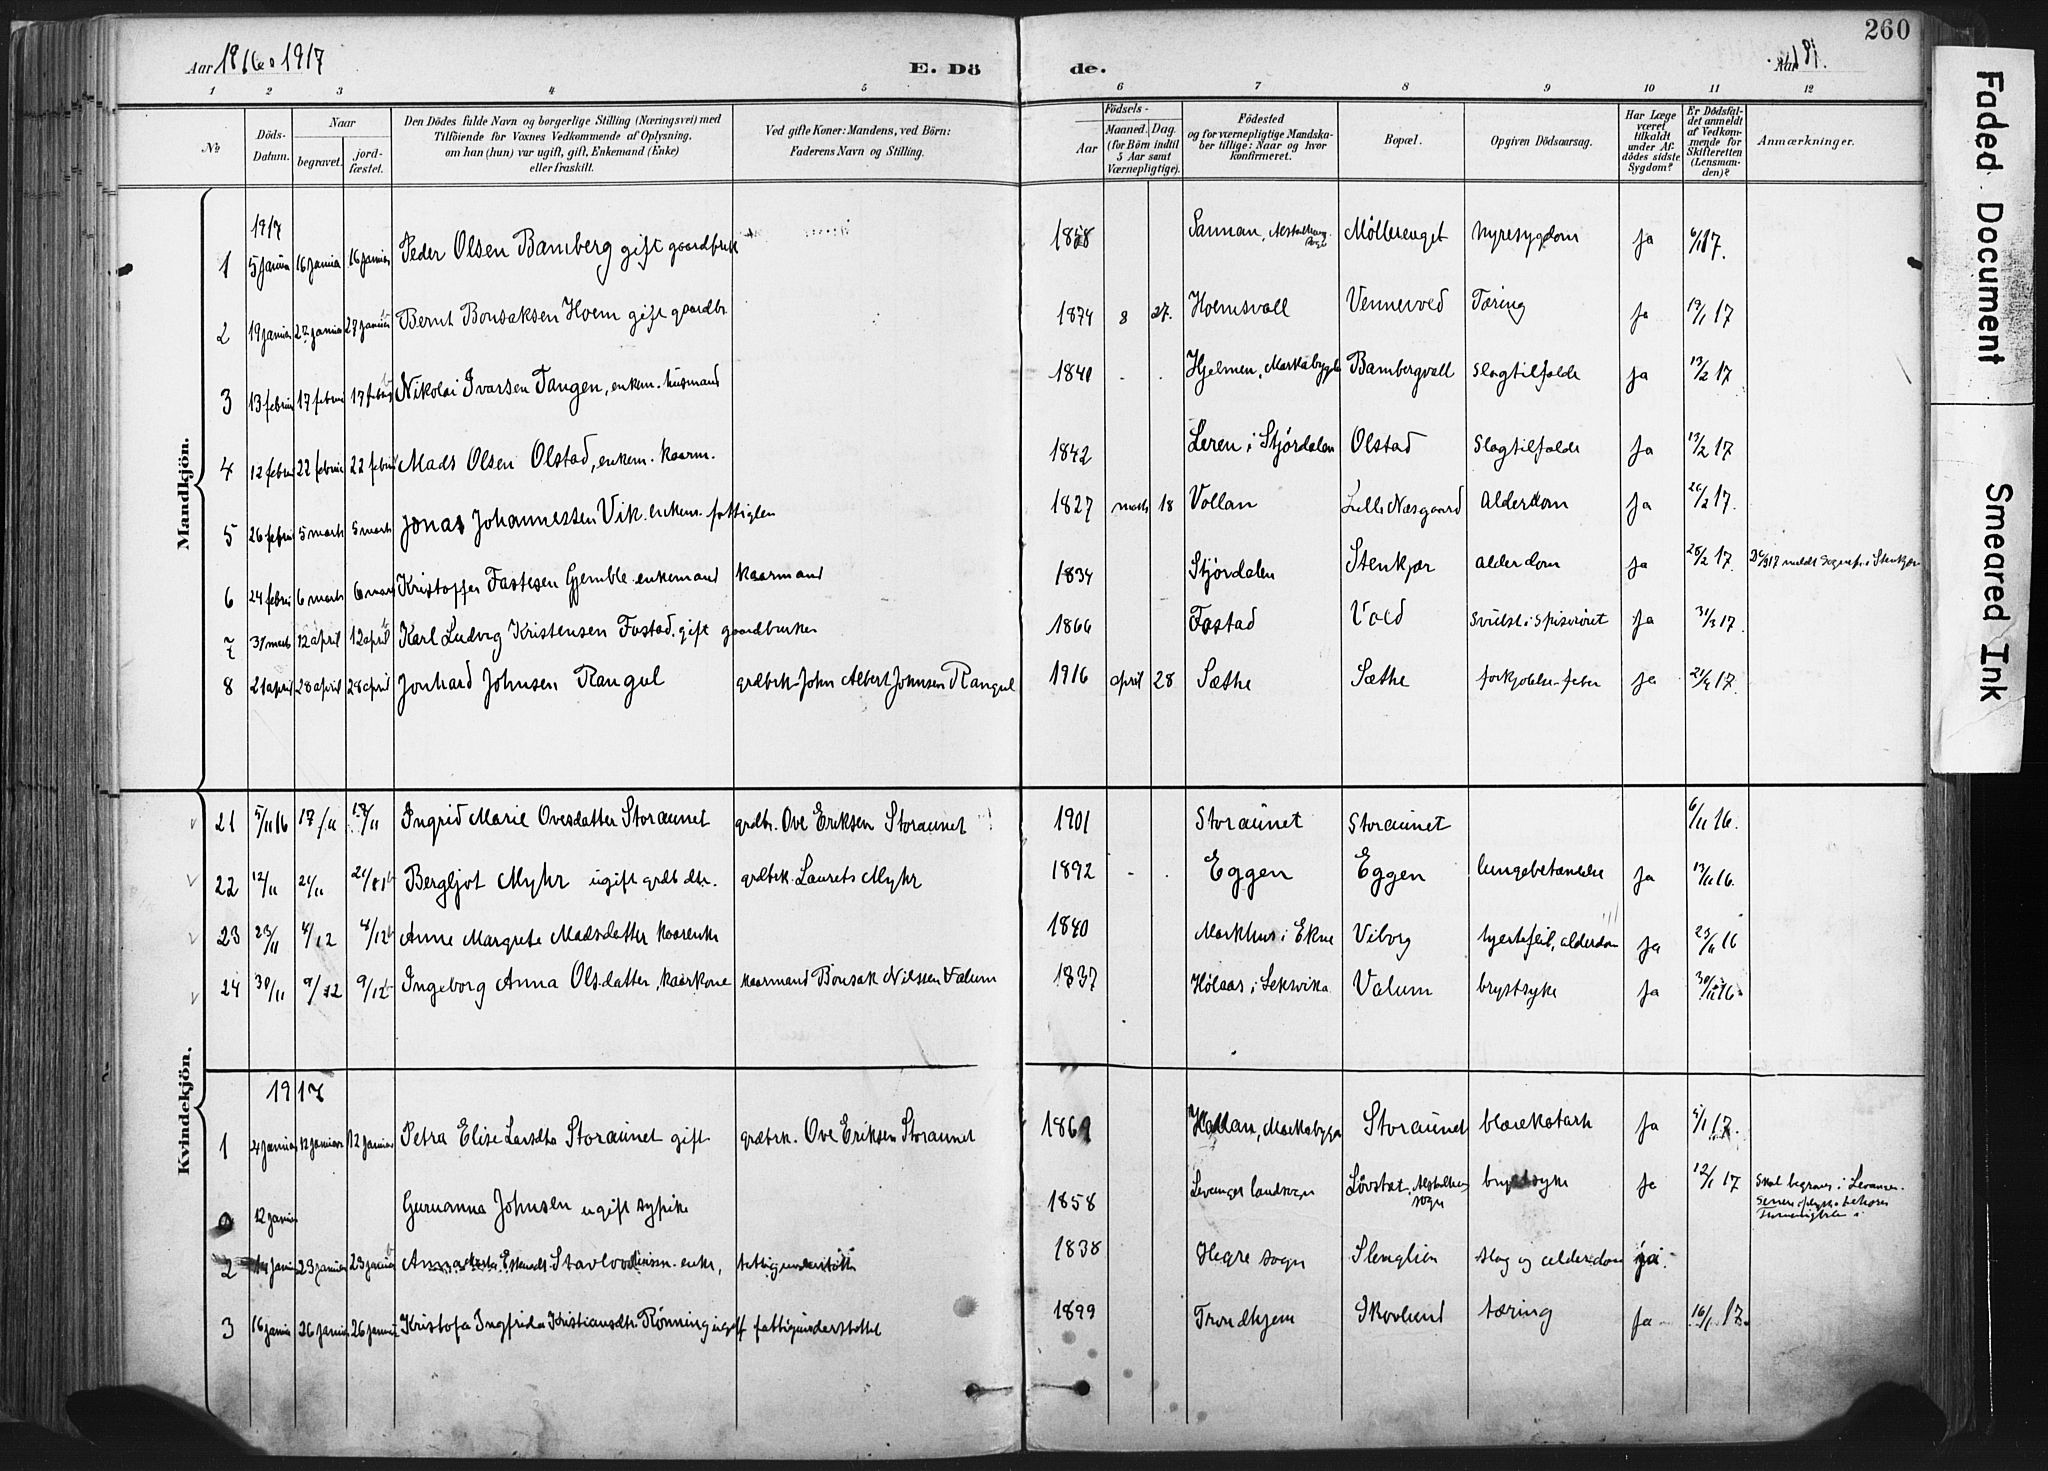 260
Aar 1916 o 1917
E. Dö
de.
Aar 191 .
1 2 3 4 5 6 7 8 9 10 11 12
№
Döds-Datum.
Naar
begravet.
jord-fæstet.
Den Dödes fulde Navn og borgerlige Stilling (Næringsvei) med
Tilföiende for Voxnes Vedkommende af Oplysning,
om han (hun) var ugift, gift, Enkemand (Enke)
eller fraskilt.
Ved gifte Koner: Mandens, ved Börn:
Faderens Navn og Stilling.
Födsels-
Aar
Maaned. Dag.
(for Börn indtil
5 Aar samt
Værnepligtige).
Födested
og for værnepligtige Mandska-
ber tillige: Naar og hvor
konfirmeret.
Bopæl.
Opgiven Dödsaarsag.
Har Læge
været
tilkaldt
under Af-
dödes sidste
Sygdom?
Er Dödsfal-
det anmeldt
af Vedkom-
mende for
Skifteretten
(Lensman-
den)?
Anmærkninger.
Faded Document
Smeared Ink
Mandkjön.
1917
1 5 januar 16 januar 16 januar Peder Olsen Bamberg gift gaardbruk 1858 Sannan, Møllerenget nyresygdom ja 6/1 17.
2 19 januar 27 januar 27 januar Bernt Bonsaksen Hoem gift gaardbr. 1874 8 27. Hoemsvall Vennevold Tæring ja 19/1 17
3 13 februar 17 februar 17 februar Nikolai Ivarsen Tangen, enkem. husmand 1840 - - Hjelmen, Markabygden Bambergvall slagtilfælde ja 13/2 17
4 12 februar 22 februar 22 februar Mads Olsen Olstad, enkem. kaarm. 1842 Leren i Stjørdalen Olstad slagtilfælde ja 13/2 17
5 26 februar 5 marts 5 marts Jonas Johannessen Vik enkem. fattiglem 1827 marts 18 Vollan Lille Næsgaard Alderdom ja 26/2 17.
6 24 februar 6 marts 6 marts Kristoffer Fastesen Gjemble enkemand kaarmand 1834 Stjørdalen Stenkjær alderdom ja 28/2 17.
7 31 marts 12 april 12 april Karl Ludvig Kristensen Fostad. gift gaardbruker 1866 Fostad Vold svulst i spiserøret ja 31/3 17.
8 21 april 28 april 28 april Jonhard Johnsen Rangul grdbrk. John Albert Johnsen Rangul 1916 april 28 Sæthe Sæthe forkjølelse-feber ja 21/4 17.
Kvindekjön.
21 5/11 16 17/11 17/11 Ingrid Marie Ovesdatter Storaunet grdbr. Ove Eriksen Storaunet 1901 Storaunet Storaunet 6/11 16.
22 12/11 24/11 24/11 Bergljot Myhr ugift grdb dtr. grdbrk. Laurets Myhr 1892 - - Eggen Eggen lungebetændelse ja 13/11 16.
23 23/11 4/12 4/12 Anne Margrete Madsdatter kaarenke 1840 Markhus i Ekne Viborg hjertefeil, alderdom ja 23/11 16
24 30/11 9/12 9/12 Ingeborg Anna Olsdatter, kaarkone kaarmand Bonsak Nilssen Valum 1837 Hølaas i Leksvika Valum brystsyke ja 30/11 16.
1917
1 4 januar 12 januar 12 januar Petra Elise Larsdtr Storaunet gift grdbrk. Ove Eriksen Storaunet 1869 Hallan, Markabygden Storaunet blærekatarh ja 5/1 17.
12 januar Gurnanna Johnsen ugift sypike 1858 Levanger landsogn Løvstad, sogn brystsyke ja 12/1 17 Skal begraves i Levanger.
2 14 januar 23 januar 23 januar enke, fattigunderstøtt. 1838 Hegre sogn Slenglien slag og alderdom ja.
3 16 januar 26 januar 26 januar Kristofa Ingfrida Kristiansdtr. Rønning ugift fattigunderstøttet 1899 Trondhjem Skovlund tæring ja 16/1 17.